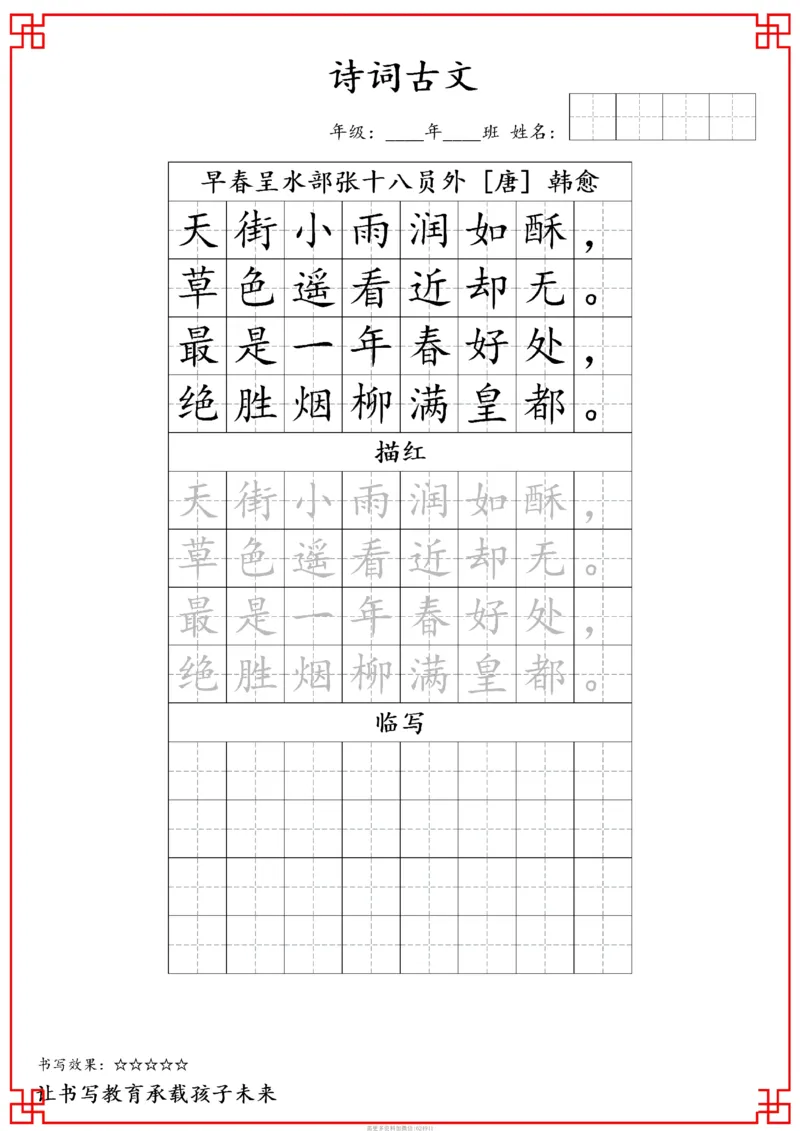 诗词古文
年级：____年____班 姓名：
早春呈水部张十八员外［唐］韩愈
天街小雨润如酥，
草色遥看近却无。
最是一年春好处，
绝胜烟柳满皇都。
描红
天街小雨润如酥，
草色遥看近却无。
最是一年春好处，
绝胜烟柳满皇都。
临写
书写效果：☆☆☆☆☆
让书写教育承载孩子未来